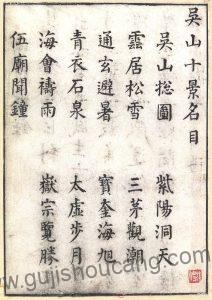 吳山十景名目
吳山総圖
紫陽洞天
雲居松雪
三茅觀潮
通玄避暑
寳奎海旭
青衣石泉
太虛步月
海會禱雨
嶽宗覽勝
伍廟聞鐘
www.gujishoucang.com